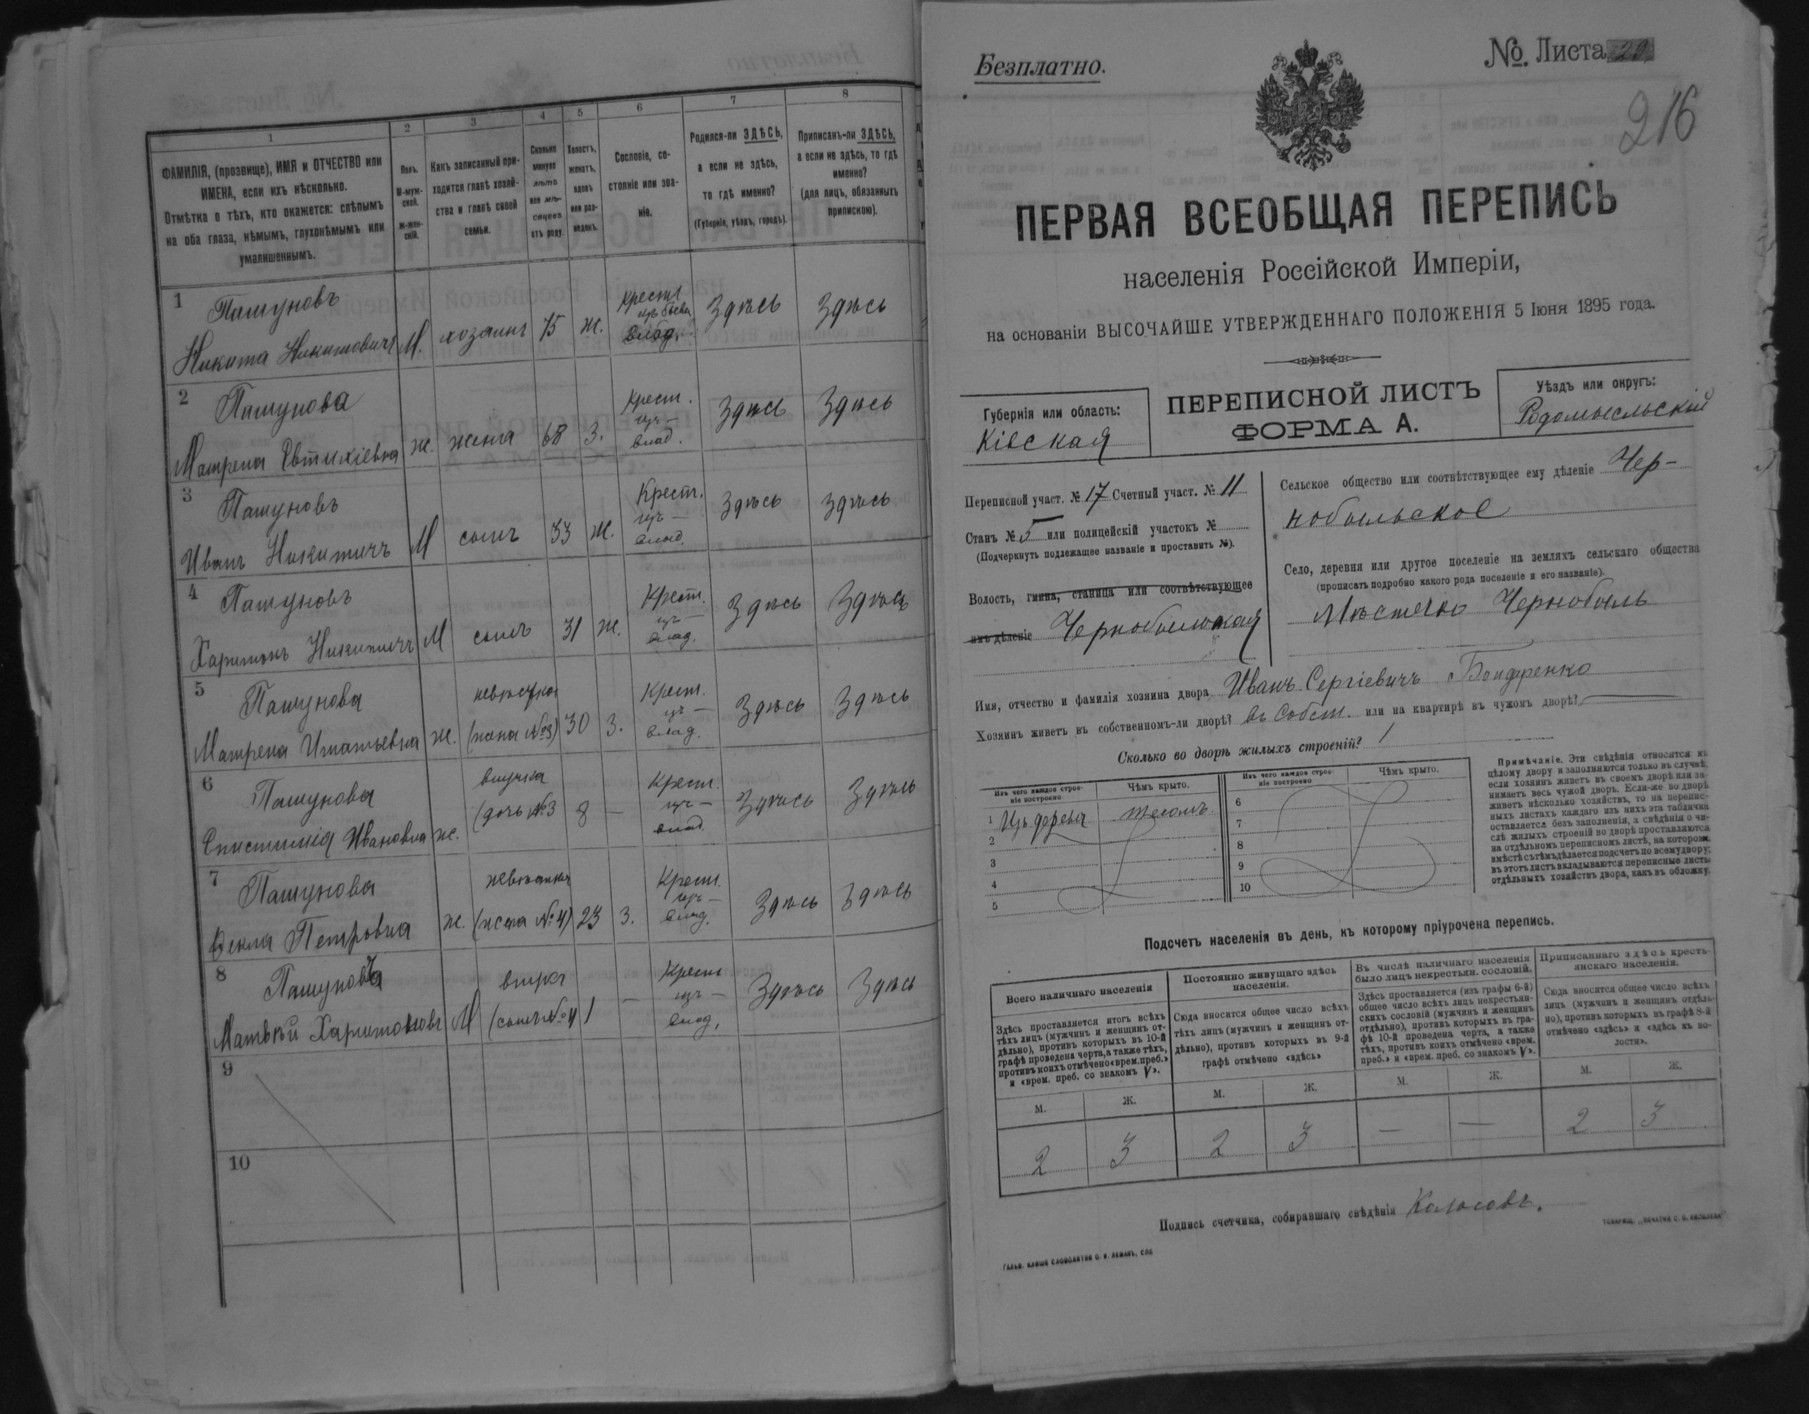 1
2
3
4
5
6
7
8
ФАМИЛІЯ, (прозвище), ИМЯ и ОТЧЕСТВО или
ИМЕНА, если ихъ нѣсколько.
Отмѣтка о тѣхъ, кто окажется: слѣпымъ
на оба глаза, нѣмымъ, глухонѣмымъ или
умалишеннымъ.
Полъ.
М-муж-
ской.
Ж-жен-
скій.
Какъ записанный при-
ходится главѣ хозяй-
ства и главѣ своей
семьи.
Сколько
минуло
лѣтъ
или мѣ-
сяцевъ
отъ роду.
Холостъ,
женатъ,
вдовъ
или раз-
веденъ.
Сословіе, со-
стояніе или зва-
ніе.
Родился-ли ЗДѢСЬ,
а если не здѣсь,
то гдѣ именно?
(Губернія, уѣздъ, городъ).
Приписанъ-ли ЗДѢСЬ,
а если не здѣсь, то гдѣ
именно?
(для лицъ, обязанныхъ
припискою).
1 Пашуновъ
Никита Никитовичъ М. хозяинъ 75 ж. крест. изъ бывш. влад. Здѣсь Здѣсь
2 Пашунова
Матрена Евтихіевна ж. жена 68 З. Крест. изъ — влад. Здѣсь Здѣсь
3 Пашуновъ
Иванъ Никитичъ М сынъ 33 Ж. Крест. изъ — влад. Здѣсь Здѣсь
4 Пашуновъ
Харитонъ Никитичъ М сынъ 31 Ж. Крест. изъ — влад. Здѣсь Здѣсь
5 Пашунова
Матрена Игнатьевна Ж. невѣстка (жена №3) 30 З. Крест. изъ — влад. Здѣсь Здѣсь
6 Пашунова
Ивановна ж. внучка (дочь №3 8 — Крест. изъ — влад. Здѣсь Здѣсь
7 Пашунова
Фекла Петровна Ж. (жена №4) 23 З. Крест. изъ — влад. Здѣсь Здѣсь
8 Пашуновъ
Матвѣй Харитоновъ М внукъ (сынъ №4 1 — Крест. изъ — влад. Здѣсь Здѣсь
9
10
Безплатно.
№ Листа 29
216
ПЕРВАЯ ВСЕОБЩАЯ ПЕРЕПИСЬ
населенія Россійской Имперіи,
на основаніи ВЫСОЧАЙШЕ УТВЕРЖДЕННАГО ПОЛОЖЕНІЯ 5 Іюня 1895 года.
Губернія или область:
Кіевская
ПЕРЕПИСНОЙ ЛИСТЪ
ФОРМА А.
Уѣздъ или округъ:
Радомысльскій
Переписной участ. № 17 Счетный участ. № 11
Станъ № 5 или полицейскій участокъ №
(Подчеркнуть подлежащее названіе и проставить №).
Волость, гмина, станица или соотвѣтствующее
имъ дѣленіе Чернобыльская
Сельское общество или соотвѣтствующее ему дѣленіе Чер-
нобыльское
Село, деревня или другое поселеніе на земляхъ сельскаго общества
(прописать подробно какого рода поселеніе и его названіе).
Мѣстечко Чернобыль
Имя, отчество и фамилія хозяина двора Иванъ Сергіевичъ Бондаренко
Хозяинъ живетъ въ собственномъ-ли дворѣ? въ собст. или на квартирѣ въ чужомъ дворѣ?
Сколько во дворѣ жилыхъ строеній? 1
Изъ чего каждое строе-
ніе построено
Чѣмъ крыто.
Изъ чего каждое строе-
ніе построено
Чѣмъ крыто.
1 Изъ дерева тесомъ
2
3
4
5
6
7
8
9
10
Примѣчаніе. Эти свѣдѣнія относятся къ
цѣлому двору и заполняются только въ случаѣ,
если хозяинъ живетъ въ своемъ дворѣ или за-
нимаетъ весь чужой дворъ. Если-же во дворѣ
живетъ нѣсколько хозяйствъ, то на перепис-
ныхъ листахъ каждаго изъ нихъ эта табличка
оставляется безъ заполненія, а свѣдѣнія о чи-
слѣ жилыхъ строеній во дворѣ проставляются
на отдѣльномъ переписномъ листѣ, на которомъ
вмѣстѣ съ тѣмъ дѣлается подсчетъ по всему двору;
въ этотъ листъ вкладываются переписные листы
отдѣльныхъ хозяйствъ двора, какъ въ обложку.
Подсчетъ населенія въ день, къ которому пріурочена перепись.
Всего наличнаго населенія
Постоянно живущаго здѣсь
населенія.
Въ числѣ наличнаго населенія
было лицъ некрестьян. сословій.
Приписаннаго здѣсь кресть-
янскаго населенія.
Здѣсь проставляется итогъ всѣхъ
тѣхъ лицъ (мужчинъ и женщинъ от-
дѣльно), противъ которыхъ въ 10-й
графѣ проведена черта, а также тѣхъ,
противъ коихъ отмѣчено «врем. преб.»
и «врем. преб. со знакомъ V».
Сюда вносится общее число всѣхъ
тѣхъ лицъ (мужчинъ и женщинъ от-
дѣльно), противъ которыхъ въ 9-й
графѣ отмѣчено «здѣсь»
Здѣсь проставляется (изъ графы 6-й)
общее число всѣхъ лицъ некрестьян-
скихъ сословій (мужчинъ и женщинъ
отдѣльно), противъ которыхъ въ гра-
фѣ 10-й проведена черта, а также
тѣхъ, противъ коихъ отмѣчено «врем.
преб.» и «врем. преб. со знакомъ V».
Сюда вносится общее число всѣхъ
лицъ (мужчинъ и женщинъ отдѣль-
но), противъ которыхъ въ графѣ 8-й
отмѣчено «здѣсь» и «здѣсь въ во-
лости».
М. Ж. М. Ж. М. Ж. М. Ж.
2 3 2 3 — — 2 3
Подпись счетчика, собиравшаго свѣдѣнія Колосовъ.
ГАЛЬВ. КЛИШЕ СЛОВОЛИТНИ О. И. ЛЕМАНЪ, СПБ
ТОВАРИЩ. „ПЕЧАТНЯ С. П. ЯКОВЛЕВА"